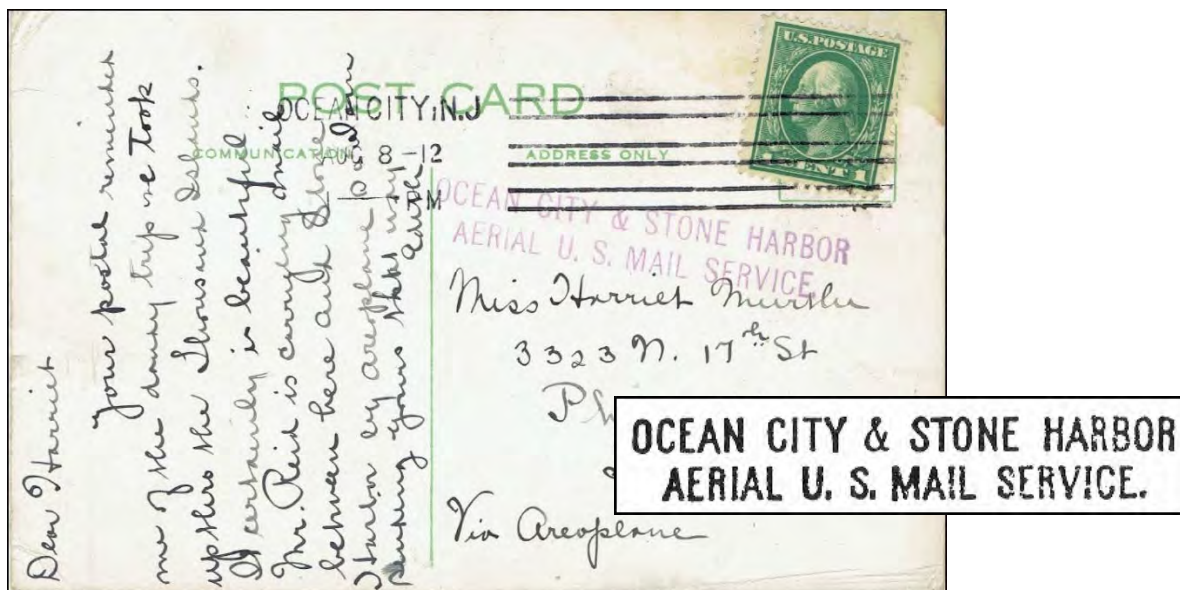 POST CARD
OCEAN CITY, N.J
AUG 8 -12
M
COMMUNICATION
ADDRESS ONLY
U.S. POSTAGE
CENT 1
OCEAN CITY & STONE HARBOR
AERIAL U. S. MAIL SERVICE.
Dear Harriet
your postal
me of the trip we took
up thro the Thousand Islands.
It certainly is beautiful.
Mr. Reid is carrying mail
between here and Stone
Harbor by areoplane
sending yours that way
Edith
Miss Harriet
3323 N. 17th St
Ph
Via Areoplane
OCEAN CITY & STONE HARBOR
AERIAL U. S. MAIL SERVICE.